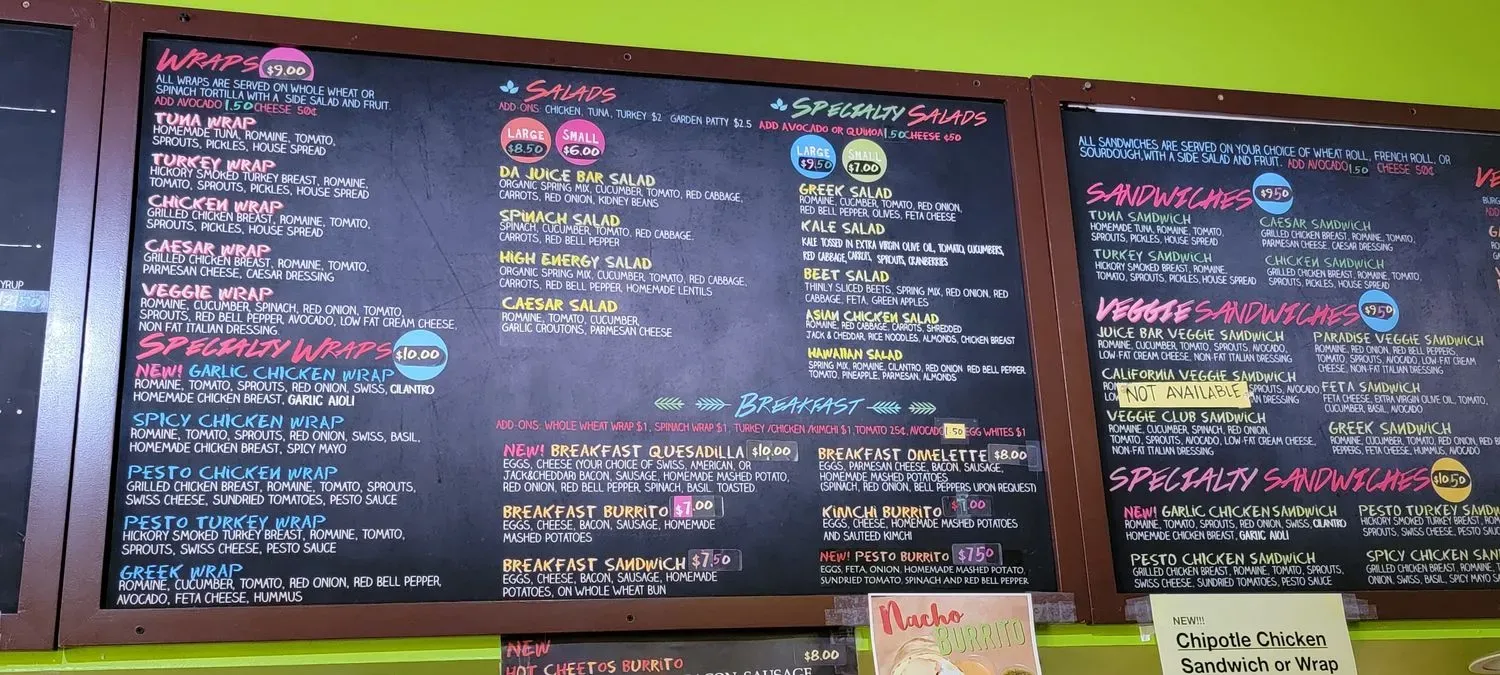 YRUP
2.50
WRAPS $9.00
ALL WRAPS ARE SERVED ON WHOLE WHEAT OR
SPINACH TORTILLA WITH A SIDE SALAD AND FRUIT.
ADD AVOCADO 1.50 CHEESE 50¢
TUNA WRAP
HOMEMADE TUNA, ROMAINE, TOMATO,
SPROUTS, PICKLES, HOUSE SPREAD
TURKEY WRAP
HICKORY SMOKED TURKEY BREAST, ROMAINE,
TOMATO, SPROUTS, PICKLES, HOUSE SPREAD
CHICKEN WRAP
GRILLED CHICKEN BREAST, ROMAINE, TOMATO,
SPROUTS, PICKLES, HOUSE SPREAD
CAESAR WRAP
GRILLED CHICKEN BREAST, ROMAINE, TOMATO,
PARMESAN CHEESE, CAESAR DRESSING
VEGGIE WRAP
ROMAINE, CUCUMBER, SPINACH, RED ONION, TOMATO,
SPROUTS, RED BELL PEPPER, AVOCADO, LOW FAT CREAM CHEESE,
NON FAT ITALIAN DRESSING.
SPECIALTY WRAPS $10.00
NEW! GARLIC CHICKEN WRAP
ROMAINE, TOMATO, SPROUTS, RED ONION, SWISS, CILANTRO
HOMEMADE CHICKEN BREAST, GARLIC AIOLI
SPICY CHICKEN WRAP
ROMAINE, TOMATO, SPROUTS, RED ONION, SWISS, BASIL,
HOMEMADE CHICKEN BREAST, SPICY MAYO
PESTO CHICKEN WRAP
GRILLED CHICKEN BREAST, ROMAINE, TOMATO, SPROUTS,
SWISS CHEESE, SUNDRIED TOMATOES, PESTO SAUCE
PESTO TURKEY WRAP
HICKORY SMOKED TURKEY BREAST, ROMAINE, TOMATO,
SPROUTS, SWISS CHEESE, PESTO SAUCE
GREEK WRAP
ROMAINE, CUCUMBER, TOMATO, RED ONION, RED BELL PEPPER,
AVOCADO, FETA CHEESE, HUMMUS
SALADS
ADD-ONS: CHICKEN, TUNA, TURKEY $2 GARDEN PATTY $2.5
LARGE $8.50 SMALL $6.00
DA JUICE BAR SALAD
ORGANIC SPRING MIX, CUCUMBER, TOMATO, RED CABBAGE,
CARROTS, RED ONION, KIDNEY BEANS
SPINACH SALAD
SPINACH, CUCUMBER, TOMATO, RED CABBAGE,
CARROTS, RED BELL PEPPER
HIGH ENERGY SALAD
ORGANIC SPRING MIX, CUCUMBER, TOMATO, RED CABBAGE,
CARROTS, RED BELL PEPPER, HOMEMADE LENTILS
CAESAR SALAD
ROMAINE, TOMATO, CUCUMBER,
GARLIC CROUTONS, PARMESAN CHEESE
SPECIALTY SALADS
ADD AVOCADO OR QUINOA 1.50 CHEESE $50
LARGE $9.50 SMALL $7.00
GREEK SALAD
ROMAINE, CUCUMBER, TOMATO, RED ONION,
RED BELL PEPPER, OLIVES, FETA CHEESE
KALE SALAD
KALE TOSSED IN EXTRA VIRGIN OLIVE OIL, TOMATO, CUCUMBERS,
RED CABBAGE, CARROTS, SPROUTS, CRANBERRIES
BEET SALAD
THINLY SLICED BEETS, SPRING MIX, RED ONION, RED
CABBAGE, FETA, GREEN APPLES
ASIAN CHICKEN SALAD
ROMAINE, RED CABBAGE, CARROTS, SHREDDED
JACK & CHEDDAR, RICE NOODLES, ALMONDS, CHICKEN BREAST
HAWAIIAN SALAD
SPRING MIX, ROMAINE, CILANTRO, RED ONION RED BELL PEPPER,
TOMATO, PINEAPPLE, PARMESAN, ALMONDS
BREAKFAST
ADD-ONS: WHOLE WHEAT WRAP $1, SPINACH WRAP $1, TURKEY /CHICKEN /KIMCHI $1, TOMATO 25¢, AVOCADO 1.50 EGG WHITES $1
NEW! BREAKFAST QUESADILLA $10.00
EGGS, CHEESE (YOUR CHOICE OF SWISS, AMERICAN, OR
JACK&CHEDDAR) BACON, SAUSAGE, HOMEMADE MASHED POTATO,
RED ONION, RED BELL PEPPER, SPINACH, BASIL TOASTED.
BREAKFAST BURRITO $7.00
EGGS, CHEESE, BACON, SAUSAGE, HOMEMADE
MASHED POTATOES
BREAKFAST SANDWICH $7.50
EGGS, CHEESE, BACON, SAUSAGE, HOMEMADE
POTATOES, ON WHOLE WHEAT BUN
BREAKFAST OMELETTE $8.00
EGGS, PARMESAN CHEESE, BACON, SAUSAGE,
HOMEMADE MASHED POTATOES
(SPINACH, RED ONION, BELL PEPPERS UPON REQUEST)
KIMCHI BURRITO $7.00
EGGS, CHEESE, HOMEMADE MASHED POTATOES
AND SAUTEED KIMCHI
NEW! PESTO BURRITO $7.50
EGGS, FETA, ONION, HOMEMADE MASHED POTATO,
SUNDRIED TOMATO, SPINACH AND RED BELL PEPPER
ALL SANDWICHES ARE SERVED ON YOUR CHOICE OF WHEAT ROLL, FRENCH ROLL, OR
SOURDOUGH, WITH A SIDE SALAD AND FRUIT. ADD AVOCADO 1.50 CHEESE 50¢
SANDWICHES $9.50
TUNA SANDWICH
HOMEMADE TUNA, ROMAINE, TOMATO,
SPROUTS, PICKLES, HOUSE SPREAD
TURKEY SANDWICH
HICKORY SMOKED BREAST, ROMAINE,
TOMATO, SPROUTS, PICKLES, HOUSE SPREAD
CAESAR SANDWICH
GRILLED CHICKEN BREAST, ROMAINE, TOMATO,
PARMESAN CHEESE, CAESAR DRESSING
CHICKEN SANDWICH
GRILLED CHICKEN BREAST, ROMAINE, TOMATO,
SPROUTS, PICKLES, HOUSE SPREAD
VEGGIE SANDWICHES $9.50
JUICE BAR VEGGIE SANDWICH
ROMAINE, CUCUMBER, TOMATO, SPROUTS, AVOCADO,
LOW-FAT CREAM CHEESE, NON-FAT ITALIAN DRESSING
CALIFORNIA VEGGIE SANDWICH
NOT AVAILABLE
VEGGIE CLUB SANDWICH
ROMAINE, CUCUMBER, RED ONION,
TOMATO, SPROUTS, AVOCADO, LOW-FAT CREAM CHEESE,
NON-FAT ITALIAN DRESSING
PARADISE VEGGIE SANDWICH
ROMAINE, RED ONION, RED BELL PEPPERS,
TOMATO, SPROUTS, AVOCADO, LOW-FAT CREAM
CHEESE, NON-FAT ITALIAN DRESSING
FETA SANDWICH
FETA CHEESE, EXTRA VIRGIN OLIVE OIL, TOMATO,
CUCUMBER, BASIL, AVOCADO
GREEK SANDWICH
ROMAINE, CUCUMBER, TOMATO, RED ONION, RED B
PEPPERS, FETA CHEESE, HUMMUS, AVOCADO
SPECIALTY SANDWICHES $10.50
NEW! GARLIC CHICKEN SANDWICH
ROMAINE, TOMATO, SPROUTS, RED ONION, SWISS, CILANTRO
HOMEMADE CHICKEN BREAST, GARLIC AIOLI
PESTO CHICKEN SANDWICH
GRILLED CHICKEN BREAST, ROMAINE, TOMATO, SPROUTS,
SWISS CHEESE, SUNDRIED TOMATOES, PESTO SAUCE
PESTO TURKEY SANDW
HICKORY SMOKED TURKEY BREAST, ROM
TOMATO, SPROUTS, SWISS CHEESE, PESTO SAUC
SPICY CHICKEN SAN
GRILLED CHICKEN BREAST, ROMAINE, T
ONION, SWISS, BASIL, SPICY MAYO S
NEW
HOT CHEETOS BURRITO $8.00
BACON, SAUSAGE
Nacho
BURRITO
NEW!!!
Chipotle Chicken
Sandwich or Wrap